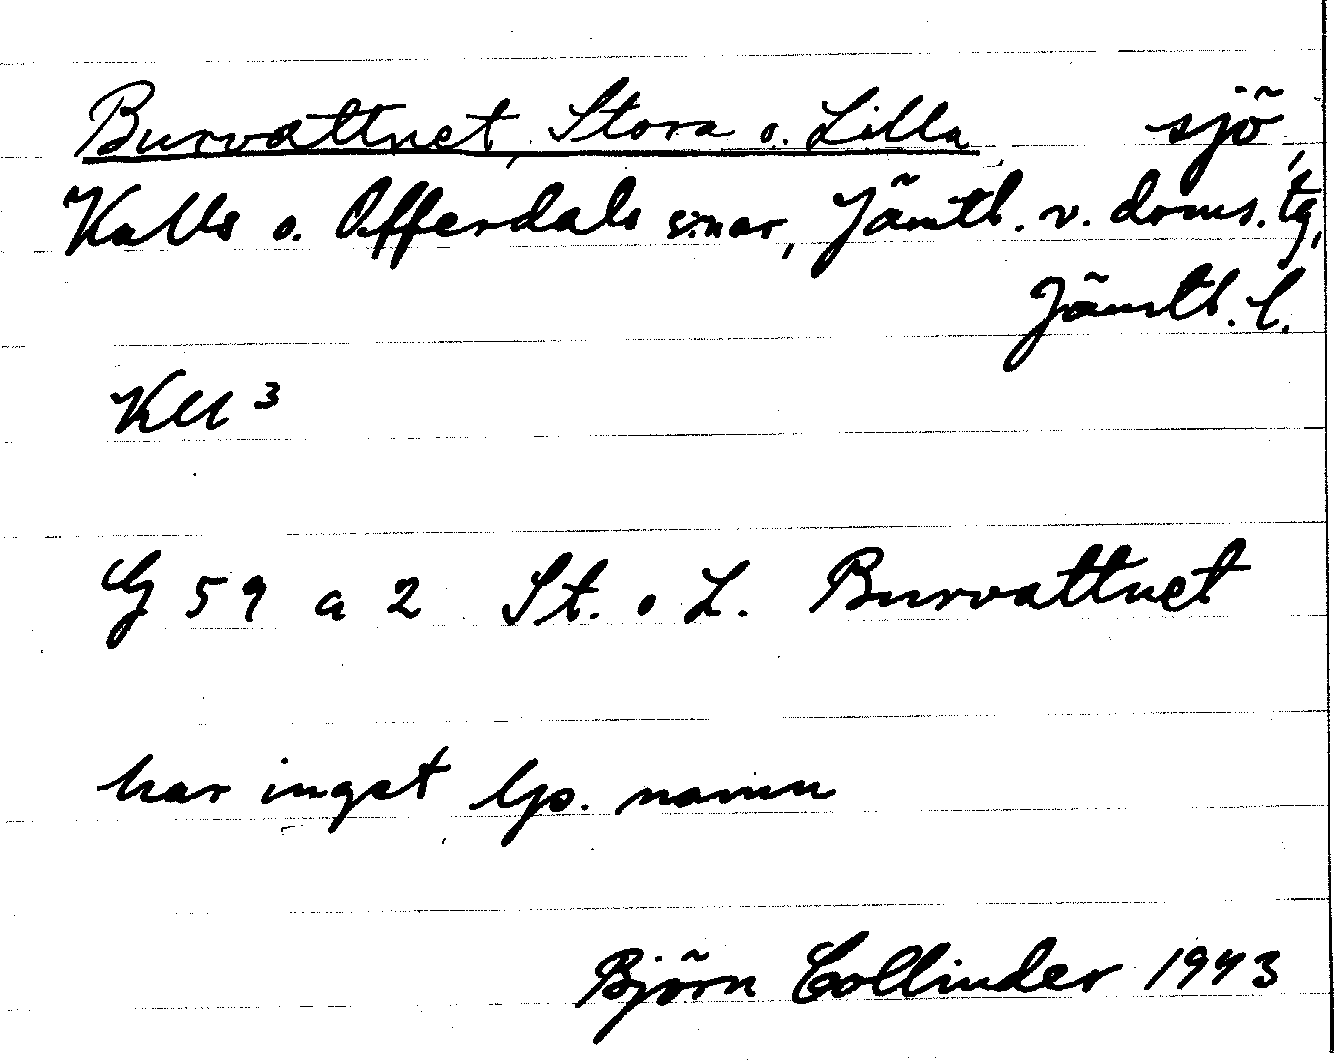 Burvattnet, Stora o. Lilla sjö,
Kalls o. Offerdals s:nar, Jämtl. v. doms. tg,
Jämtl. l.
KU 3
G 59 a 2 St. o L. Burvattnet
har inget lp. namn
Björn Collinder 1943